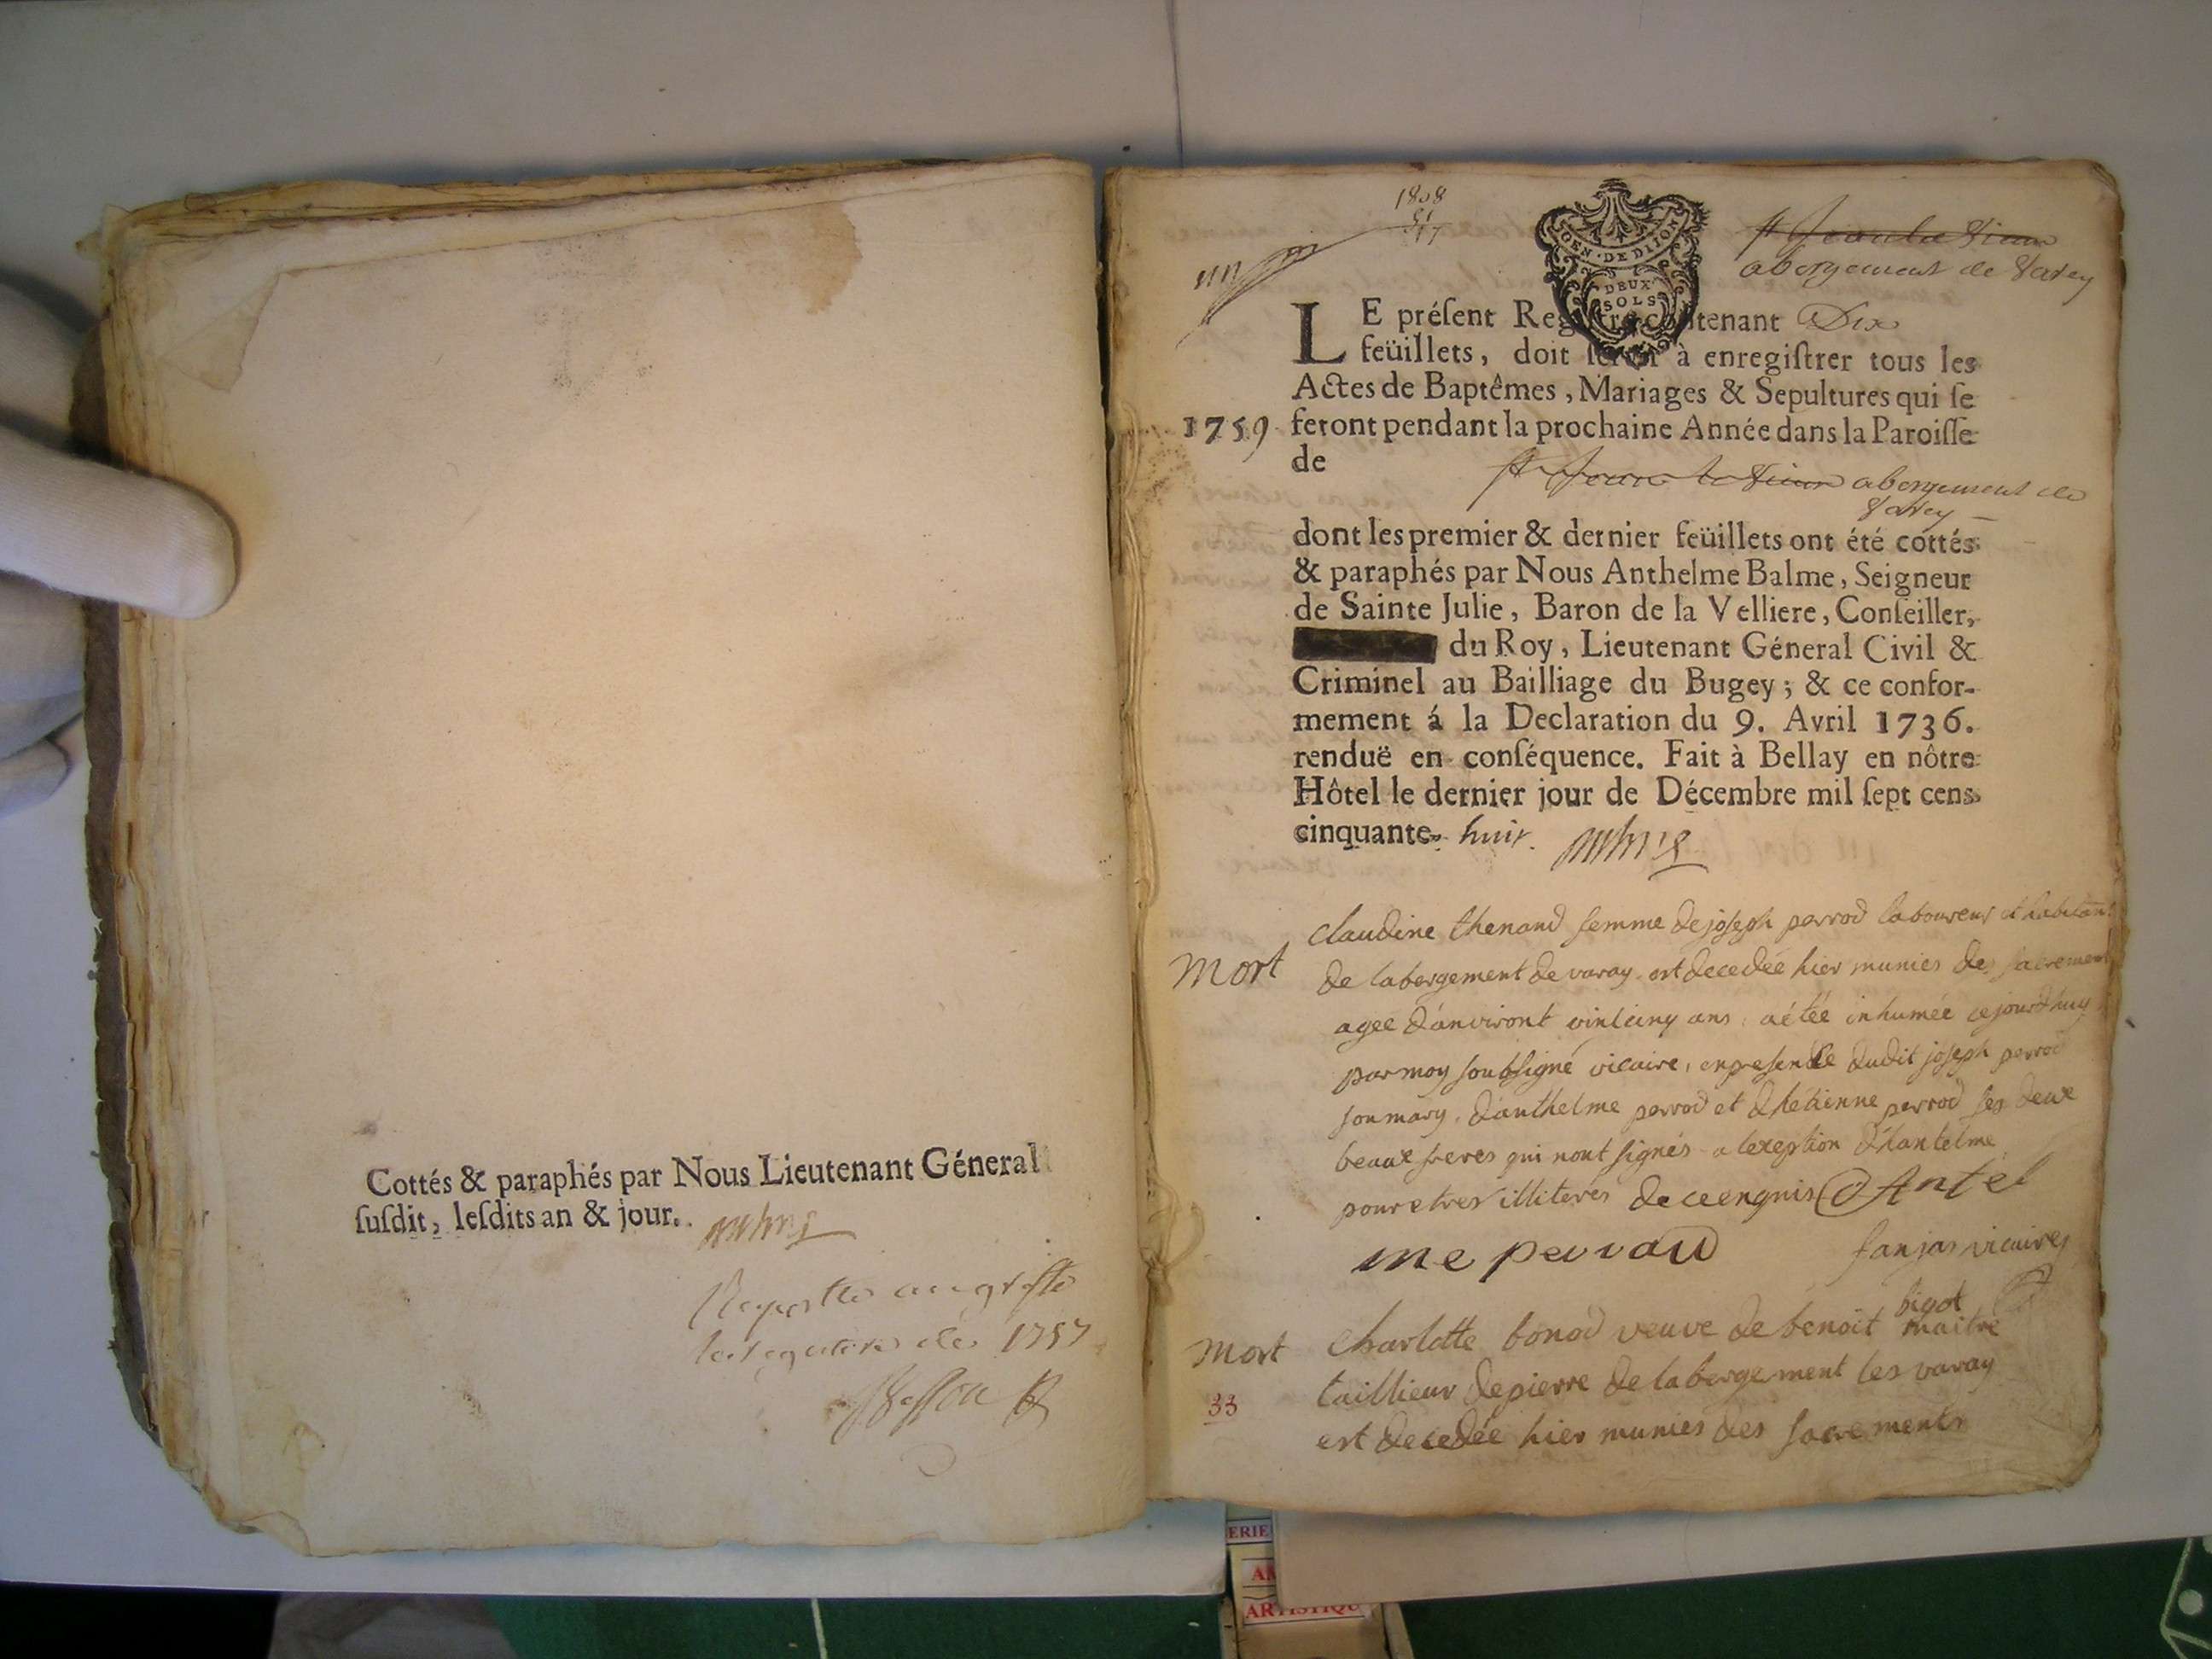 Cottés & paraphés par Nous Lieutenant Géneral
ſuſdit, leſdits an & jour.
1757
1808
GEN · DE DIJON
DEUX
SOLS
abergement de Varey
LE préſent Regiſtre contenant Dix
feüillets, doit ſervir à enregiſtrer tous les
Actes de Baptêmes, Mariages & Sepultures qui ſe
1759 feront pendant la prochaine Année dans la Paroiſſe
de St Jean le Vieux abergement de
Varey
dont les premier & dernier feüillets ont été cottés
& paraphés par Nous Anthelme Balme, Seigneur
de Sainte Julie, Baron de la Velliere, Conſeiller,
du Roy, Lieutenant Géneral Civil &
Criminel au Bailliage du Bugey; & ce confor-
mement á la Declaration du 9. Avril 1736.
renduë en conſéquence. Fait à Bellay en nôtre
Hôtel le dernier jour de Décembre mil ſept cens
cinquante huit.
claudine thenand femme de joseph perrod laboureur et habitant
Mort
de labergement de varay est decedée hier munies des sacrement
agee d'anviront vintcinq ans, a étée inhumée cejourdhuy
par moy soubsigné vicaire, en presence dudit joseph perrod
son mary, d'anthelme perrod et d'hetienne perrod ses deux
beaux freres qui nont signés a lexeption d'hantelme
pour etres illiterés de ce enquis Antel
me perrod
fanjas vicaire
bigot
Mort charlotte bonod veuve de benoit maitre
33
taillieur de pierre de labergement les varay
est decedée hier munies des sacrements
ERIE
AM
ARTISTIQU